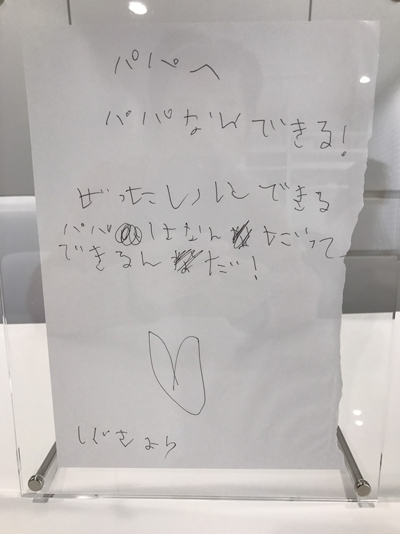 パパへ
パパなんできる!
ぜったいにできる
パパはなんだって
できるんだ!
より